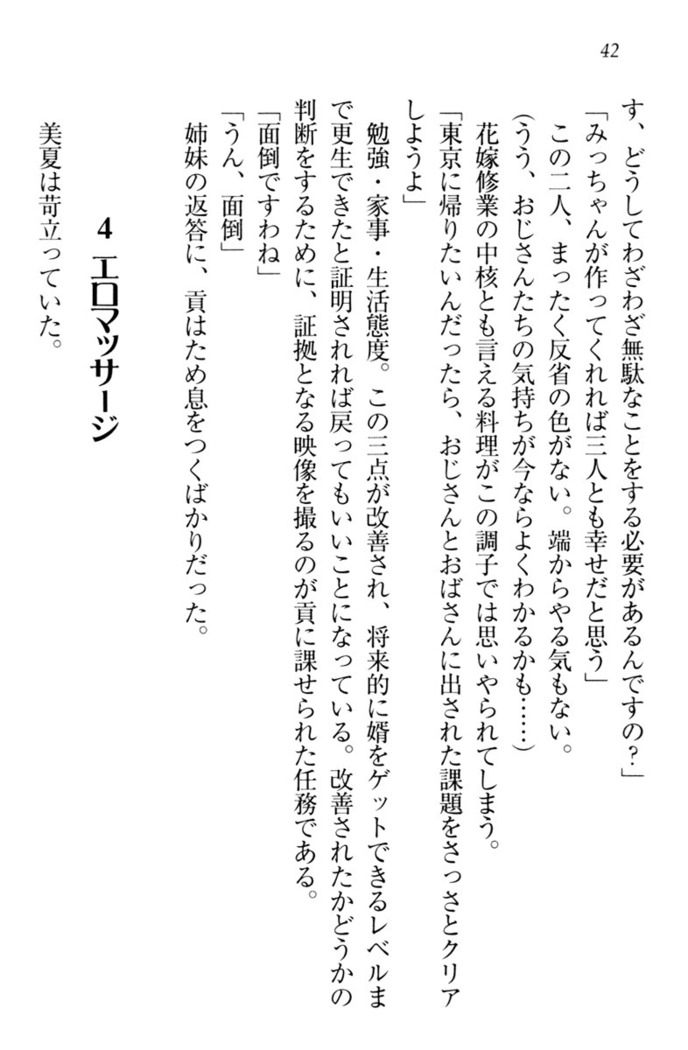 42
す、どうしてわざわざ無駄なことをする必要があるんですの?」
「みっちゃんが作ってくれれば三人とも幸せだと思う」
この二人、まったく反省の色がない。端からやる気もない。
(うう、おじさんたちの気持ちが今ならよくわかるかも……)
花嫁修業の中核とも言える料理がこの調子では思いやられてしまう。
「東京に帰りたいんだったら、おじさんとおばさんに出された課題をさっさとクリア
しようよ」
勉強・家事・生活態度。この三点が改善され、将来的に婿をゲットできるレベルま
で更生できたと証明されれば戻ってもいいことになっている。改善されたかどうかの
判断をするために、証拠となる映像を撮るのが貢に課せられた任務である。
「面倒ですわね」
「うん、面倒」
姉妹の返答に、貢はため息をつくばかりだった。
4 エロマッサージ
美夏は苛立っていた。